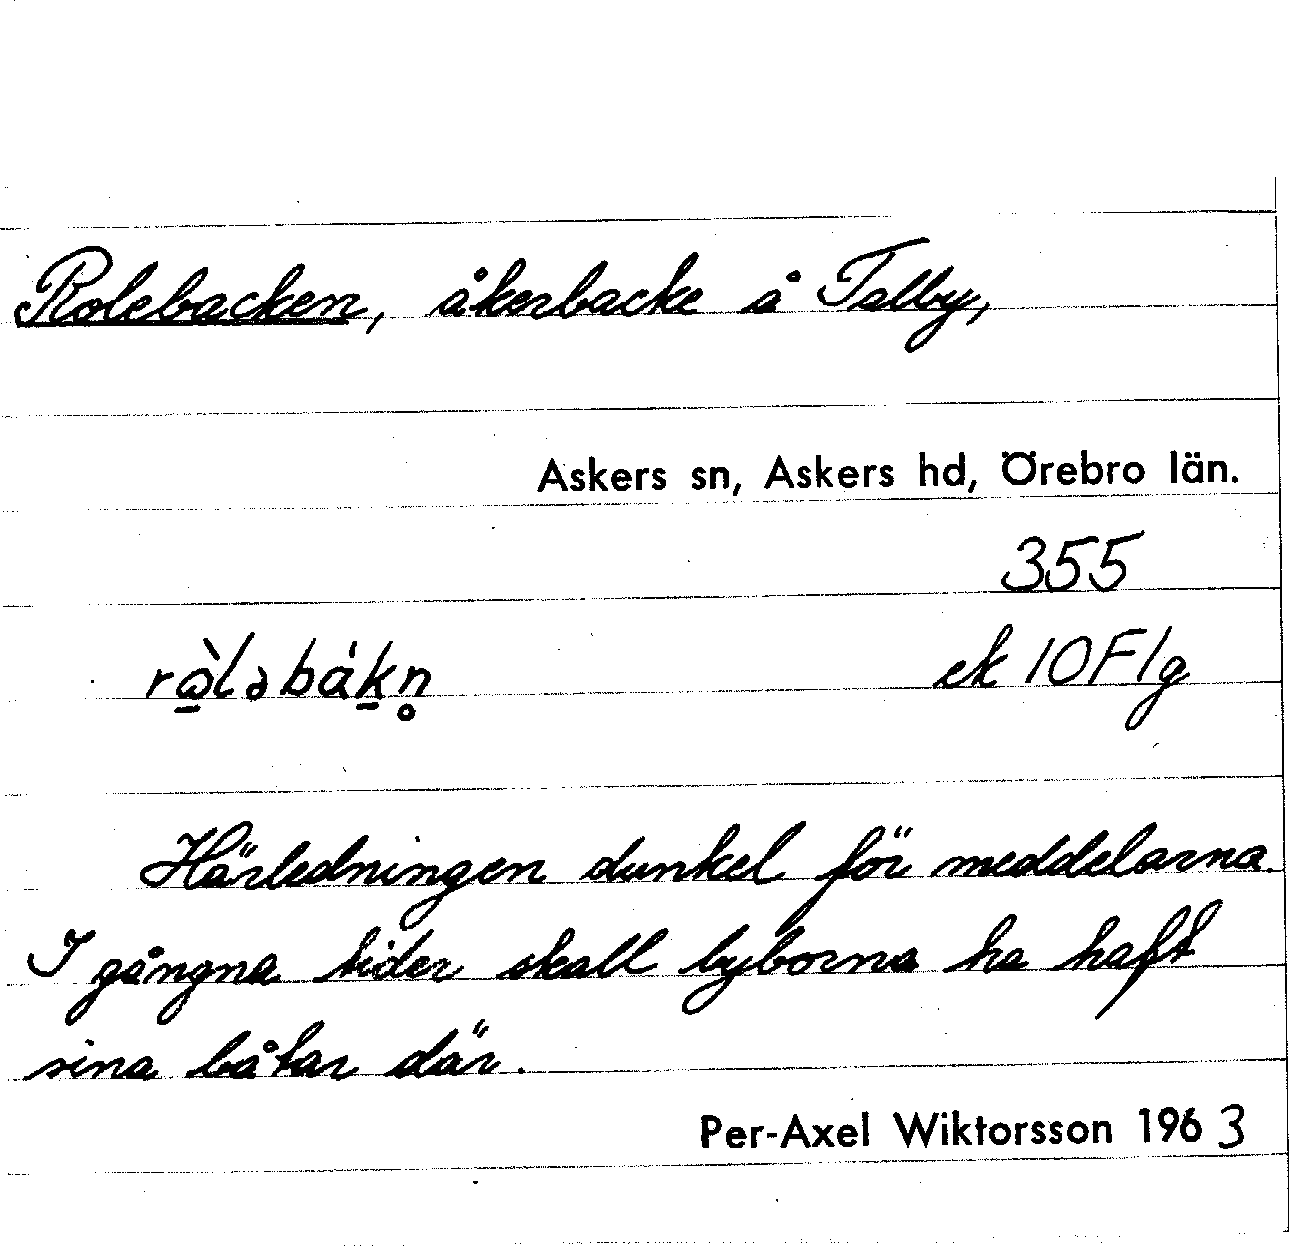 Rolebacken, åkerbacke å Talby,
Askers sn, Askers hd, Örebro län.
355
rò̱lə báḵn̥ ek 10F1g
Härledningen dunkel för meddelarna.
I gångna tider skall byborna ha haft
sina båtar där.
Per-Axel Wiktorsson 1963